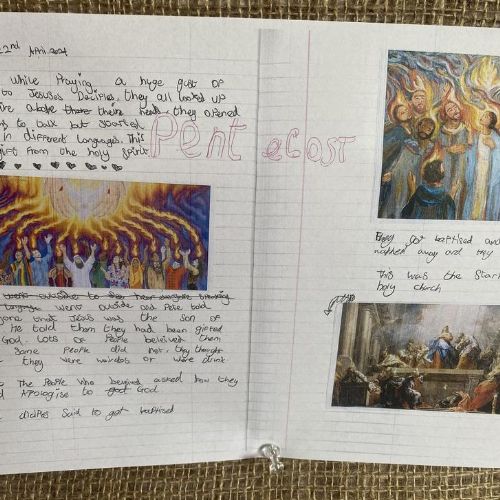 22nd April 2024
while Praying, a huge gust of
to Jesuses Decipels. they all looked up
above their heads they opened
to talk but started
in different languages. This
gift from the holy spirit
Pentecost
went outside and Pete told
that Jesus was the son of
He told them they had been gifted
God. Lots of People beleived them
Some People did not, they thought
they were weirdos or were drunk.
The People who beleived asked how they
Apologise to God
said to get baptised
got baptised and
away and they
This was the Start
holy church